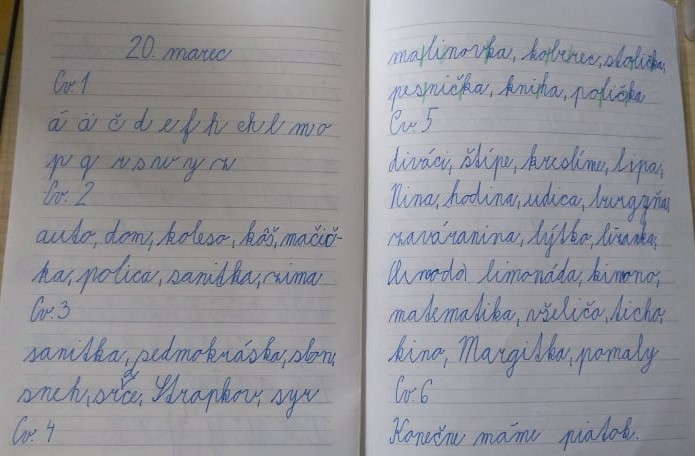 20. marec
Cv. 1
á ä č d e f h ch l m o
p q r s w y z
Cv. 2
auto, dom, koleso, kôš, mačič-
ka, polica, sanitka, zima
Cv. 3
sanitka, sedmokráska, slon,
sneh, srdce, Strapkov, syr
Cv. 4
malinovka, koberec, stolička,
pesnička, kniha, polička
Cv. 5
diváci, štípe, kreslíme, lipa,
Nina, hodina, udica,
zaváranina, lýtko, lízanka,
limonáda, kimono,
matematika, všeličo, ticho,
kino, Margitka, pomaly
Cv. 6
Konečne máme piatok.